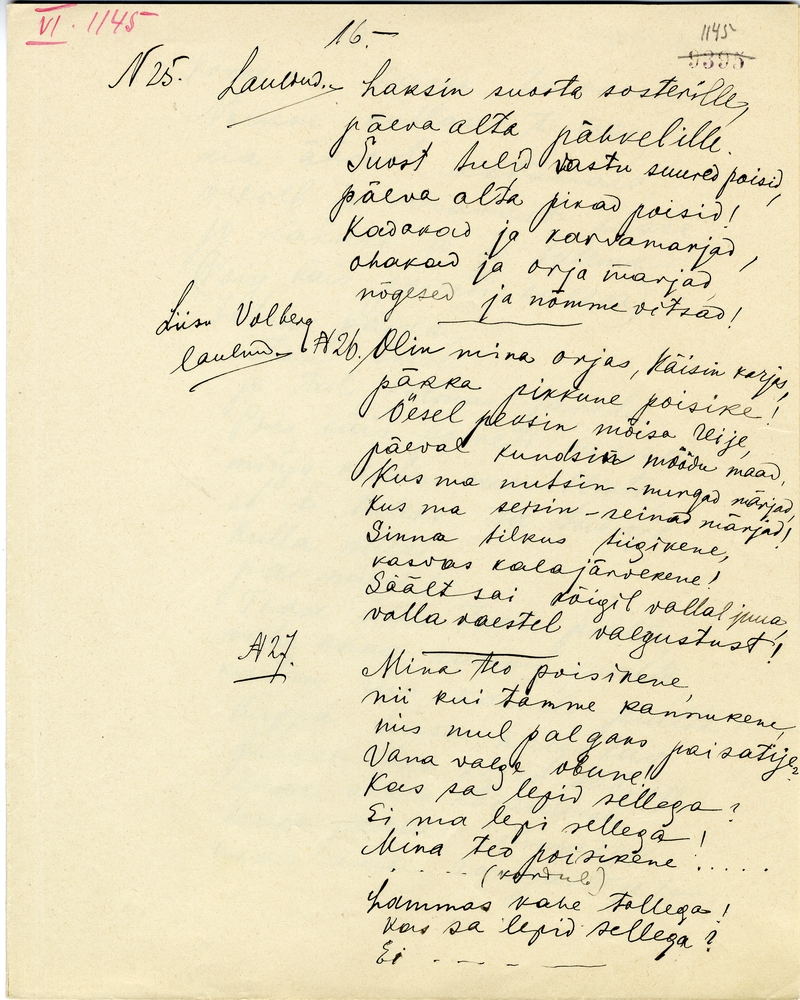 VI. 1145
16.—
1145
9395
N 25. Lauldud. Laksin suosta sosterille,
päeva alta pähkelille.
Suost tulid vastu suured poisid,
päeva alta pikad poisid!
Kadakad ja karvamarjad,
ohakad ja orja marjad
nõgesed ja nõmme vitsad!
Liisu Volberg
lauldud. N 26. Olin mina orjas, Käisin karjas,
päkka pikkune poisike!
Öesel peksin mõisa reije,
päeval kundsin möödu maad,
Kus ma nutsin – nurgad märjad,
Kus ma seisin – seinad märjad!
Sinna tilkus tiigikene,
kasvas kalajärvekene!
Säält sai kõigil vallal juua,
valla vaestel valgustust!
N 27.
Mina teo poisikene,
nii kui tamme kannukene,
mis mul palgaks paisatije?
Vana valge obune!
Kas sa lepid sellega?
Ei ma lepi sellega!
Mina teo poisikene .....
. . . . (kordub)
Lammas kahe tallega!
kas sa lepid sellega?
Ei - - - —